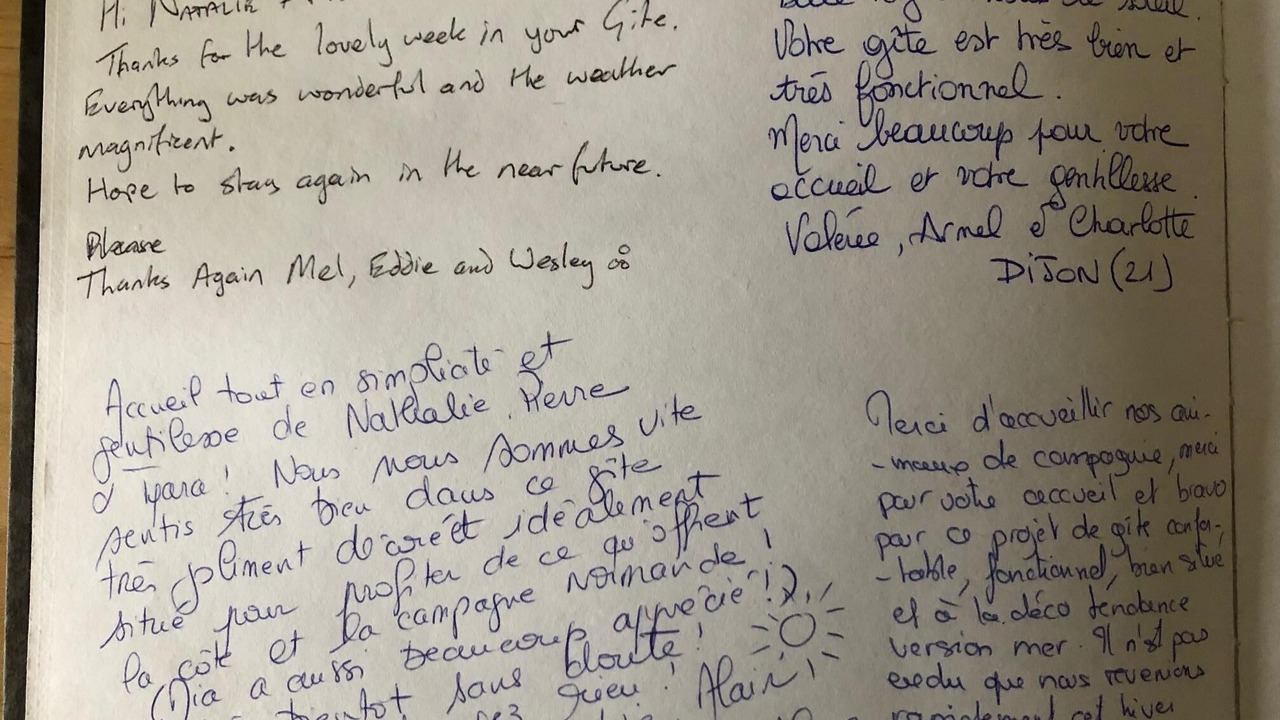 Hi NATALIE +
Thanks for the lovely week in your Gite.
Everything was wonderful and the weather
magnificent.
Hope to stay again in the near future.
Please
Thanks Again Mel, Eddie and Wesley
soleil.
Votre gîte est très bien et
très fonctionnel.
Merci beaucoup pour votre
accueil et votre gentillesse.
Valérie, Armel et Charlotte
DIJON (21)
Accueil tout en simplicité et
gentilesse de Nathalie, Pierre
& Yara! Nous nous sommes vite
sentis très bien dans ce gîte
très joliment décoré et idéalement
situé pour profiter de ce qu'offrent
la côte et la campagne normande!
(Dia a aussi beaucoup apprécié!).
bientôt sans doute!
Alain
Merci d'accueillir nos ani-
-maux de compagnie, merci
pour votre accueil et bravo
pour ce projet de gîte confor-
-table, fonctionnel, bien situé
et à la déco tendance
version mer. Il n'est pas
exclu que nous revenions
rapidement cet hiver